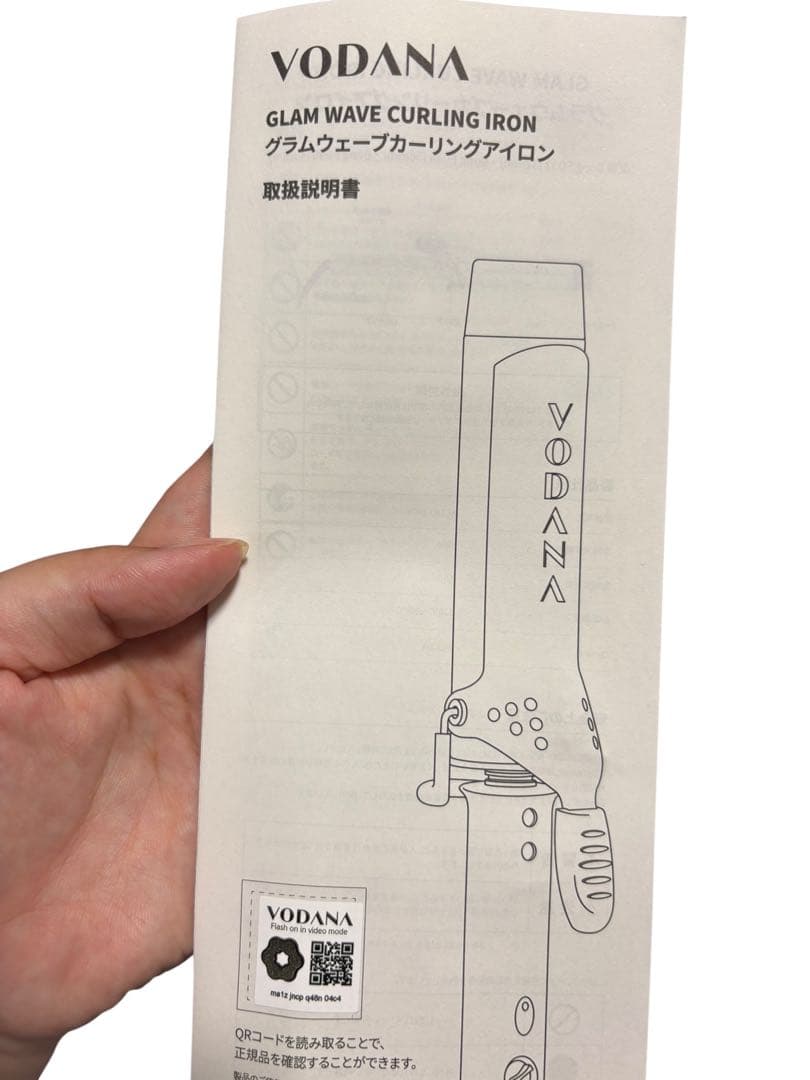 VODANA
GLAM WAVE CURLING IRON
グラムウェーブカーリングアイロン
取扱説明書
VODANA
VODANA
Flash on in video mode
ma1z jncp q48n 04c4
QRコードを読み取ることで、
正規品を確認することができます。